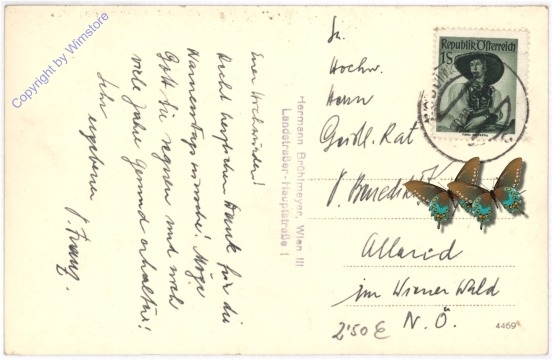 Euer Hochwürden!
Recht herzlichen Dank für die
Namenstagswünsche! Möge
Gott Sie segnen und noch
viele Jahre gesund erhalten!
Ihr ergebener
P. Franz.
Hermann Brühlmeyer, Wien III
Landstraßer-Hauptstraße 1
Sr.
Hochw.
Herrn
Geistl. Rat
P. Benedikt
Alland
im Wiener Wald
N. Ö.
2'50 €
4469
Republik Österreich
1S
Copyright by Wimstore